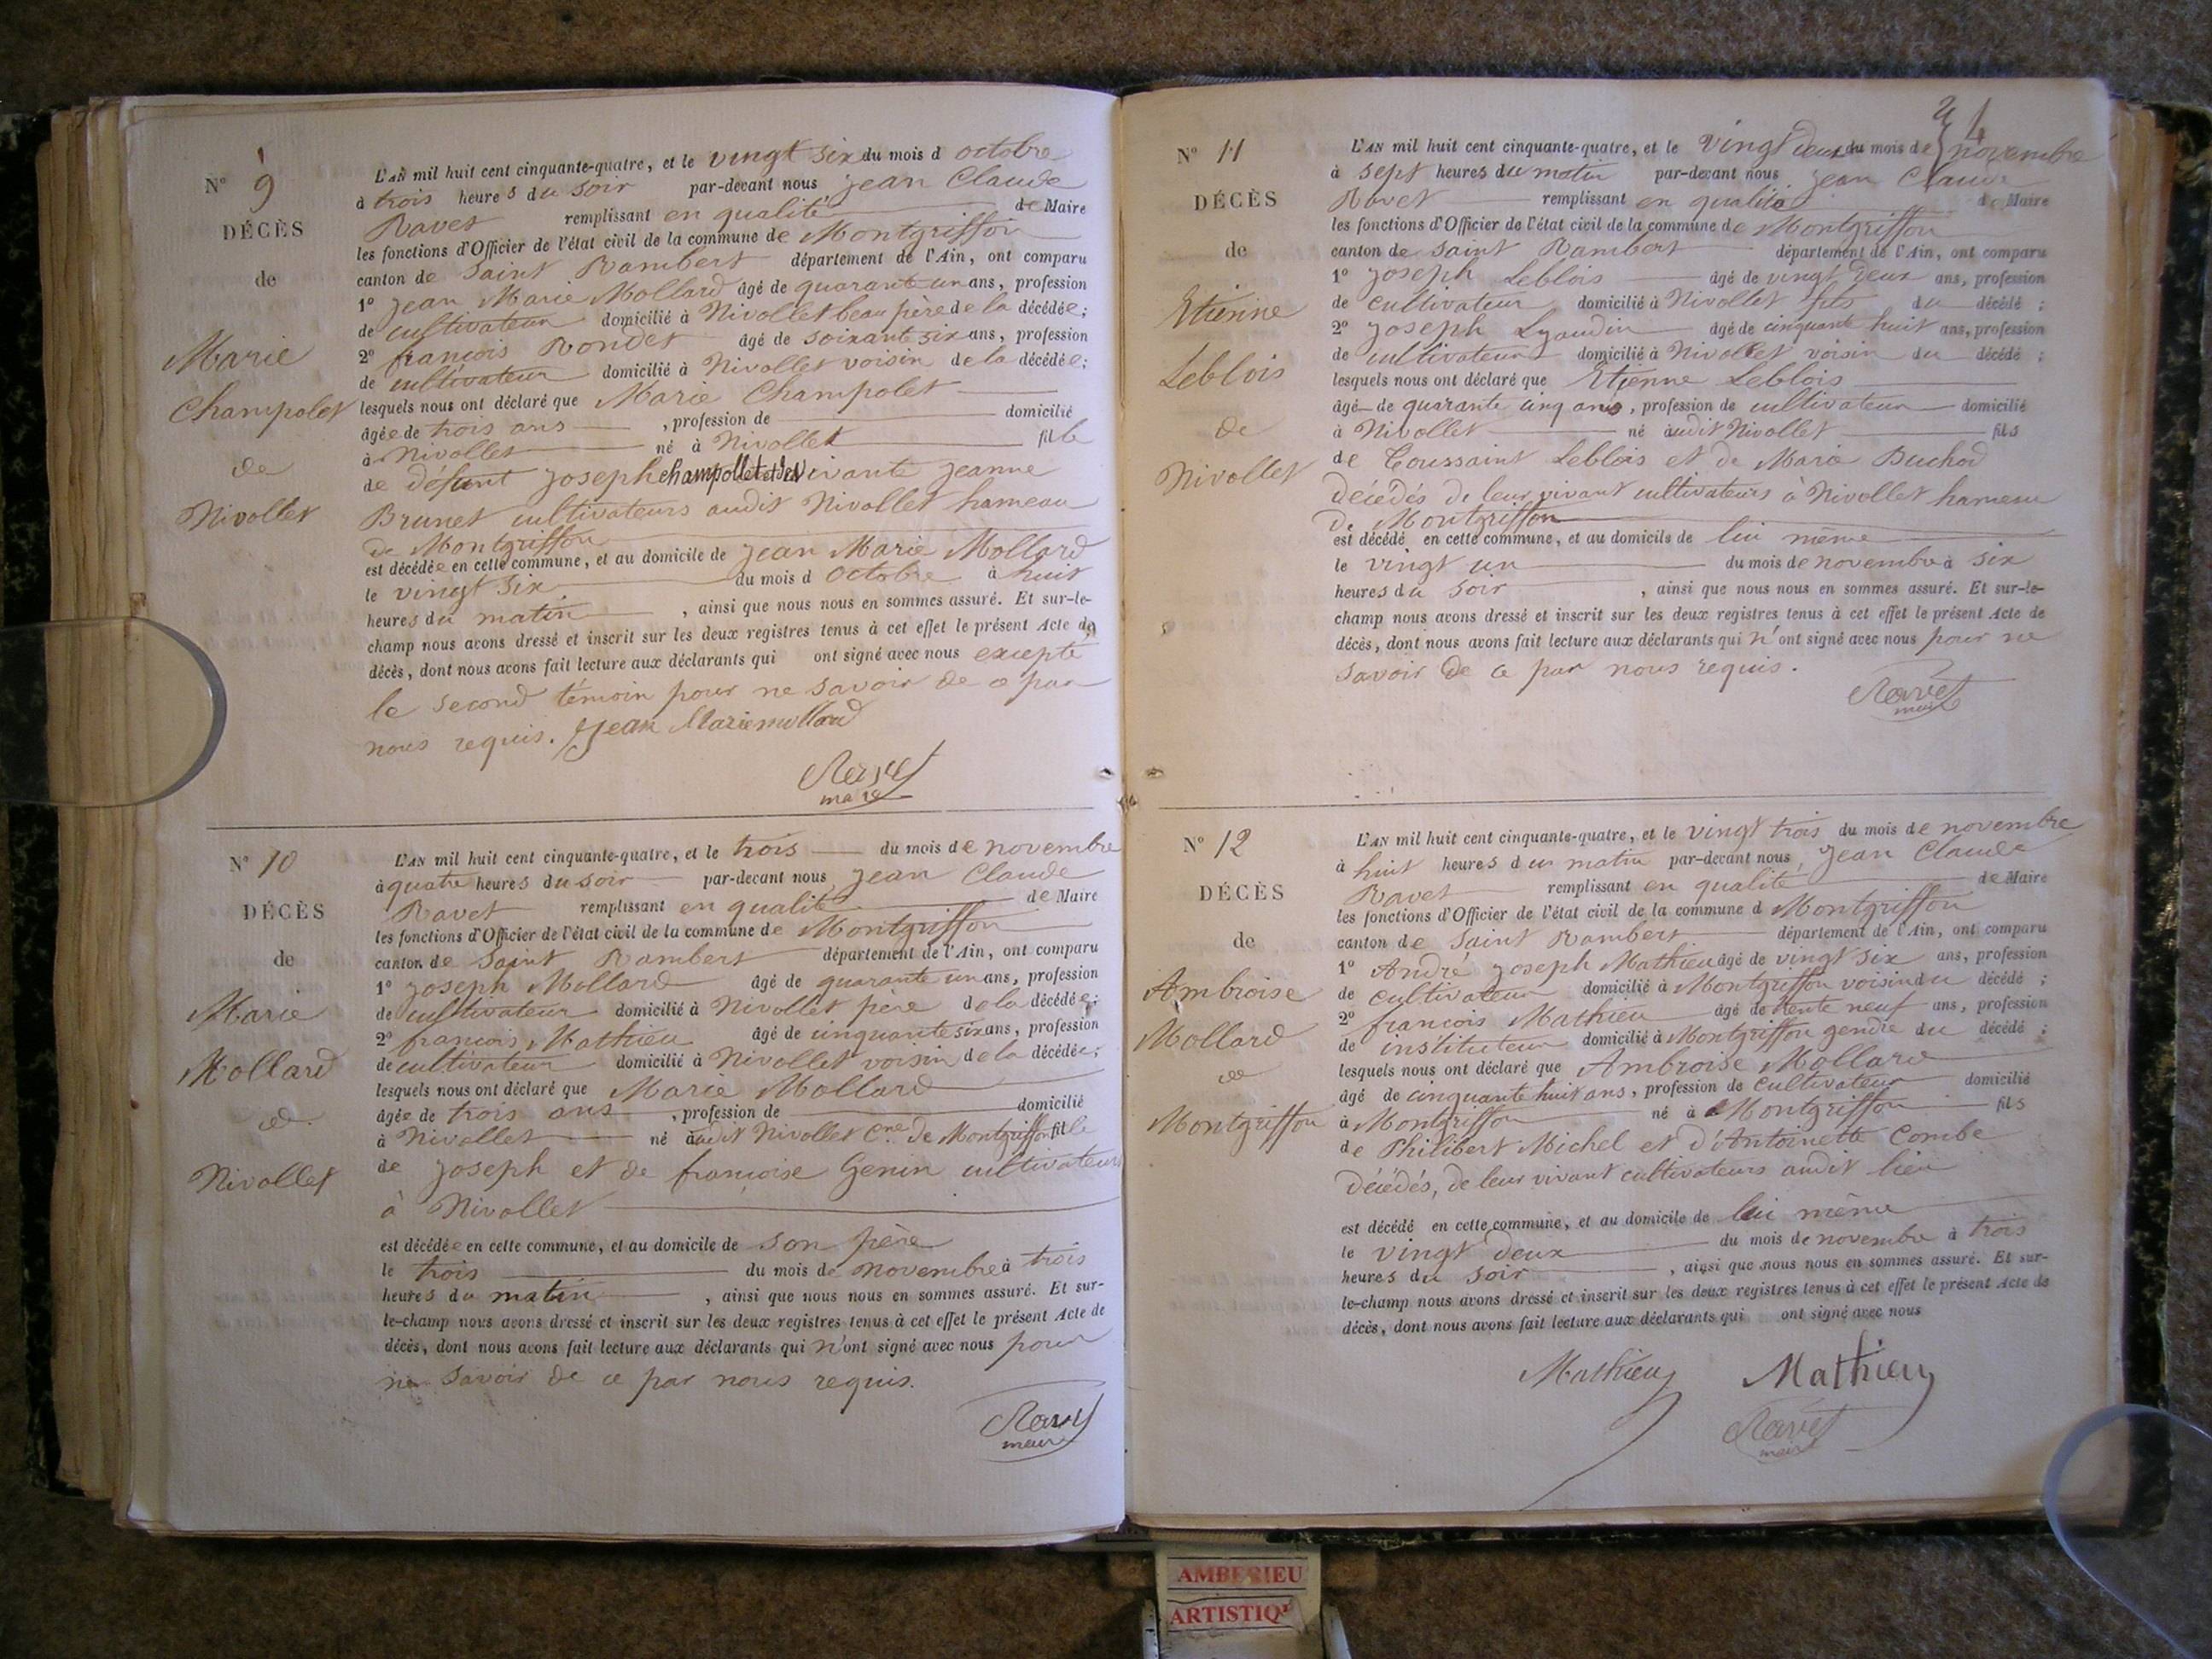 N° 9
DÉCÈS
de
Marie
Champolet
de
Nivollet
L'AN mil huit cent cinquante-quatre, et le vingt six du mois d octobre
à trois heures du soir par-devant nous Jean Claude
Ravet remplissant en qualité de Maire
les fonctions d'Officier de l'état civil de la commune de Montgriffon
canton de Saint Rambert département de l'Ain, ont comparu
1° Jean Marie Mollard âgé de quarante un ans, profession
de cultivateur domicilié à Nivollet beau père de la décédée;
2° françois Rondet âgé de soixante six ans, profession
de cultivateur domicilié à Nivollet voisin de la décédée;
lesquels nous ont déclaré que Marie Champolet
âgée de trois ans, profession de domicilié
à Nivollet né à Nivollet fille
de défunt Joseph champollet et de vivante Jeanne
Brunet cultivateurs audit Nivollet hameau
de Montgriffon
est décédée en cette commune, et au domicile de Jean Marie Mollard
le vingt six du mois d octobre à huit
heures du matin, ainsi que nous nous en sommes assuré. Et sur-le-
champ nous avons dressé et inscrit sur les deux registres tenus à cet effet le présent Acte de
décès, dont nous avons fait lecture aux déclarants qui ont signé avec nous excepté
le second témoin pour ne savoir de ce par
nous requis. Jean Marie mollard
Ravet
maire
N° 10
DÉCÈS
de
Marie
Mollard
de
Nivollet
L'AN mil huit cent cinquante-quatre, et le trois du mois de novembre
à quatre heures du soir par-devant nous Jean Claude
Ravet remplissant en qualité de Maire
les fonctions d'Officier de l'état civil de la commune de Montgriffon
canton de Saint Rambert département de l'Ain, ont comparu
1° Joseph Mollard âgé de quarante un ans, profession
de cultivateur domicilié à Nivollet pere de la décédée;
2° francois Mathieu âgé de cinquante six ans, profession
de cultivateur domicilié à Nivollet voisin de la décédée;
lesquels nous ont déclaré que Marie Mollard
âgée de trois ans, profession de domicilié
à Nivollet né audit Nivollet Cne de Montgriffon fille
de Joseph et de françoise Genin cultivateurs
à Nivollet
est décédée en cette commune, et au domicile de son père
le trois du mois de novembre à trois
heures du matin, ainsi que nous nous en sommes assuré. Et sur-
le-champ nous avons dressé et inscrit sur les deux registres tenus à cet effet le présent Acte de
décès, dont nous avons fait lecture aux déclarants qui n'ont signé avec nous pour
ne savoir de ce par nous requis.
Ravet
maire
N° 11
DÉCÈS
de
Etienne
Leblois
de
Nivollet
L'AN mil huit cent cinquante-quatre, et le vingt deux du mois de novembre
à sept heures du matin par-devant nous Jean Claude
Ravet remplissant en qualité de Maire
les fonctions d'Officier de l'état civil de la commune de Montgriffon
canton de Saint Rambert département de l'Ain, ont comparu
1° Joseph Leblois âgé de vingt deux ans, profession
de cultivateur domicilié à Nivollet fils du décédé;
2° Joseph Lyaudin âgé de cinquante huit ans, profession
de cultivateur domicilié à Nivollet voisin du décédé;
lesquels nous ont déclaré que Etienne Leblois
âgé de quarante cinq ans, profession de cultivateur domicilié
à Nivollet né audit Nivollet fils
de Toussaint Leblois et de Marie Buchod
décédés de leur vivant cultivateurs à Nivollet hameau
de Montgriffon
est décédé en cette commune, et au domicile de lui même
le vingt un du mois de novembre à six
heures du soir, ainsi que nous nous en sommes assuré. Et sur-le-
champ nous avons dressé et inscrit sur les deux registres tenus à cet effet le présent Acte de
décès, dont nous avons fait lecture aux déclarants qui n'ont signé avec nous pour ne
savoir de ce par nous requis.
Ravet
maire
N° 12
DÉCÈS
de
Ambroise
Mollard
de
Montgriffon
L'AN mil huit cent cinquante-quatre, et le vingt trois du mois de novembre
à huit heures du matin par-devant nous Jean Claude
Ravet remplissant en qualité de Maire
les fonctions d'Officier de l'état civil de la commune d Montgriffon
canton de Saint Rambert département de l'Ain, ont comparu
1° André Joseph Mathieu âgé de vingt six ans, profession
de cultivateur domicilié à Montgriffon voisin du décédé;
2° francois Mathieu âgé de trente neuf ans, profession
de instituteur domicilié à Montgriffon gendre du décédé;
lesquels nous ont déclaré que Ambroise Mollard
âgé de cinquante huit ans, profession de cultivateur domicilié
à Montgriffon né à Montgriffon fils
de Philibert Michel et d'Antoinette Combe
décédés, de leur vivant cultivateurs audit lieu
est décédé en cette commune, et au domicile de lui même
le vingt deux du mois de novembre à trois
heures du soir, ainsi que nous nous en sommes assuré. Et sur-
le-champ nous avons dressé et inscrit sur les deux registres tenus à cet effet le présent Acte de
décès, dont nous avons fait lecture aux déclarants qui ont signé avec nous
Mathieu Mathieu
Ravet
maire
AMBERIEU
ARTISTIQUE